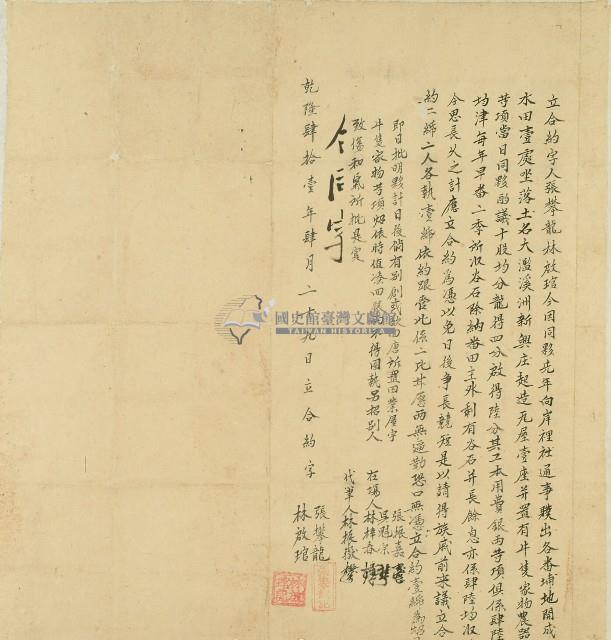 立合約字人張攀龍林啟琯今因同夥先年向岸裡社通事贌出各番埔地開成
水田壹處坐落土名大溫溪洲新興庄起造瓦屋壹座并置有牛隻家物農器
等項當日同夥酌議十股均分龍得四分啟得陸分其工本用費銀両等項俱係肆陸
均津每年早番二季所收谷石除納番田主外剩有谷石并長餘息亦係肆陸均收
今思長久之計應立合約為憑以免日後爭長競短是以請得族戚前來議立合
約二紙二人各執壹紙依約跟管此係二比甘愿両無逼勒恐口無憑立合約壹紙為炤
即日批明夥計日後倘有別創或欲回唐所置田業屋宇
牛隻家物等項炤依時值湊四股不得同執另招別人
致傷和氣所批是實
合同字
張振嘉
吳冠宗
在場人林梓春
代筆人林振嶽
乾隆肆拾壹年肆月二十九日立合約字
張攀龍
林啟琯
國史館臺灣文獻館
TAIWAN HISTORICA